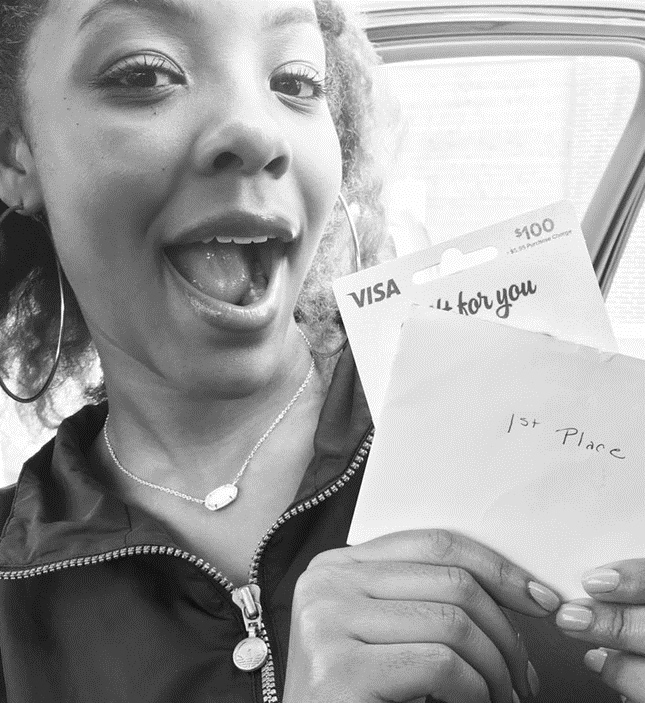 $100
+ $5.95 Purchase Charge
VISA
for you
1st Place